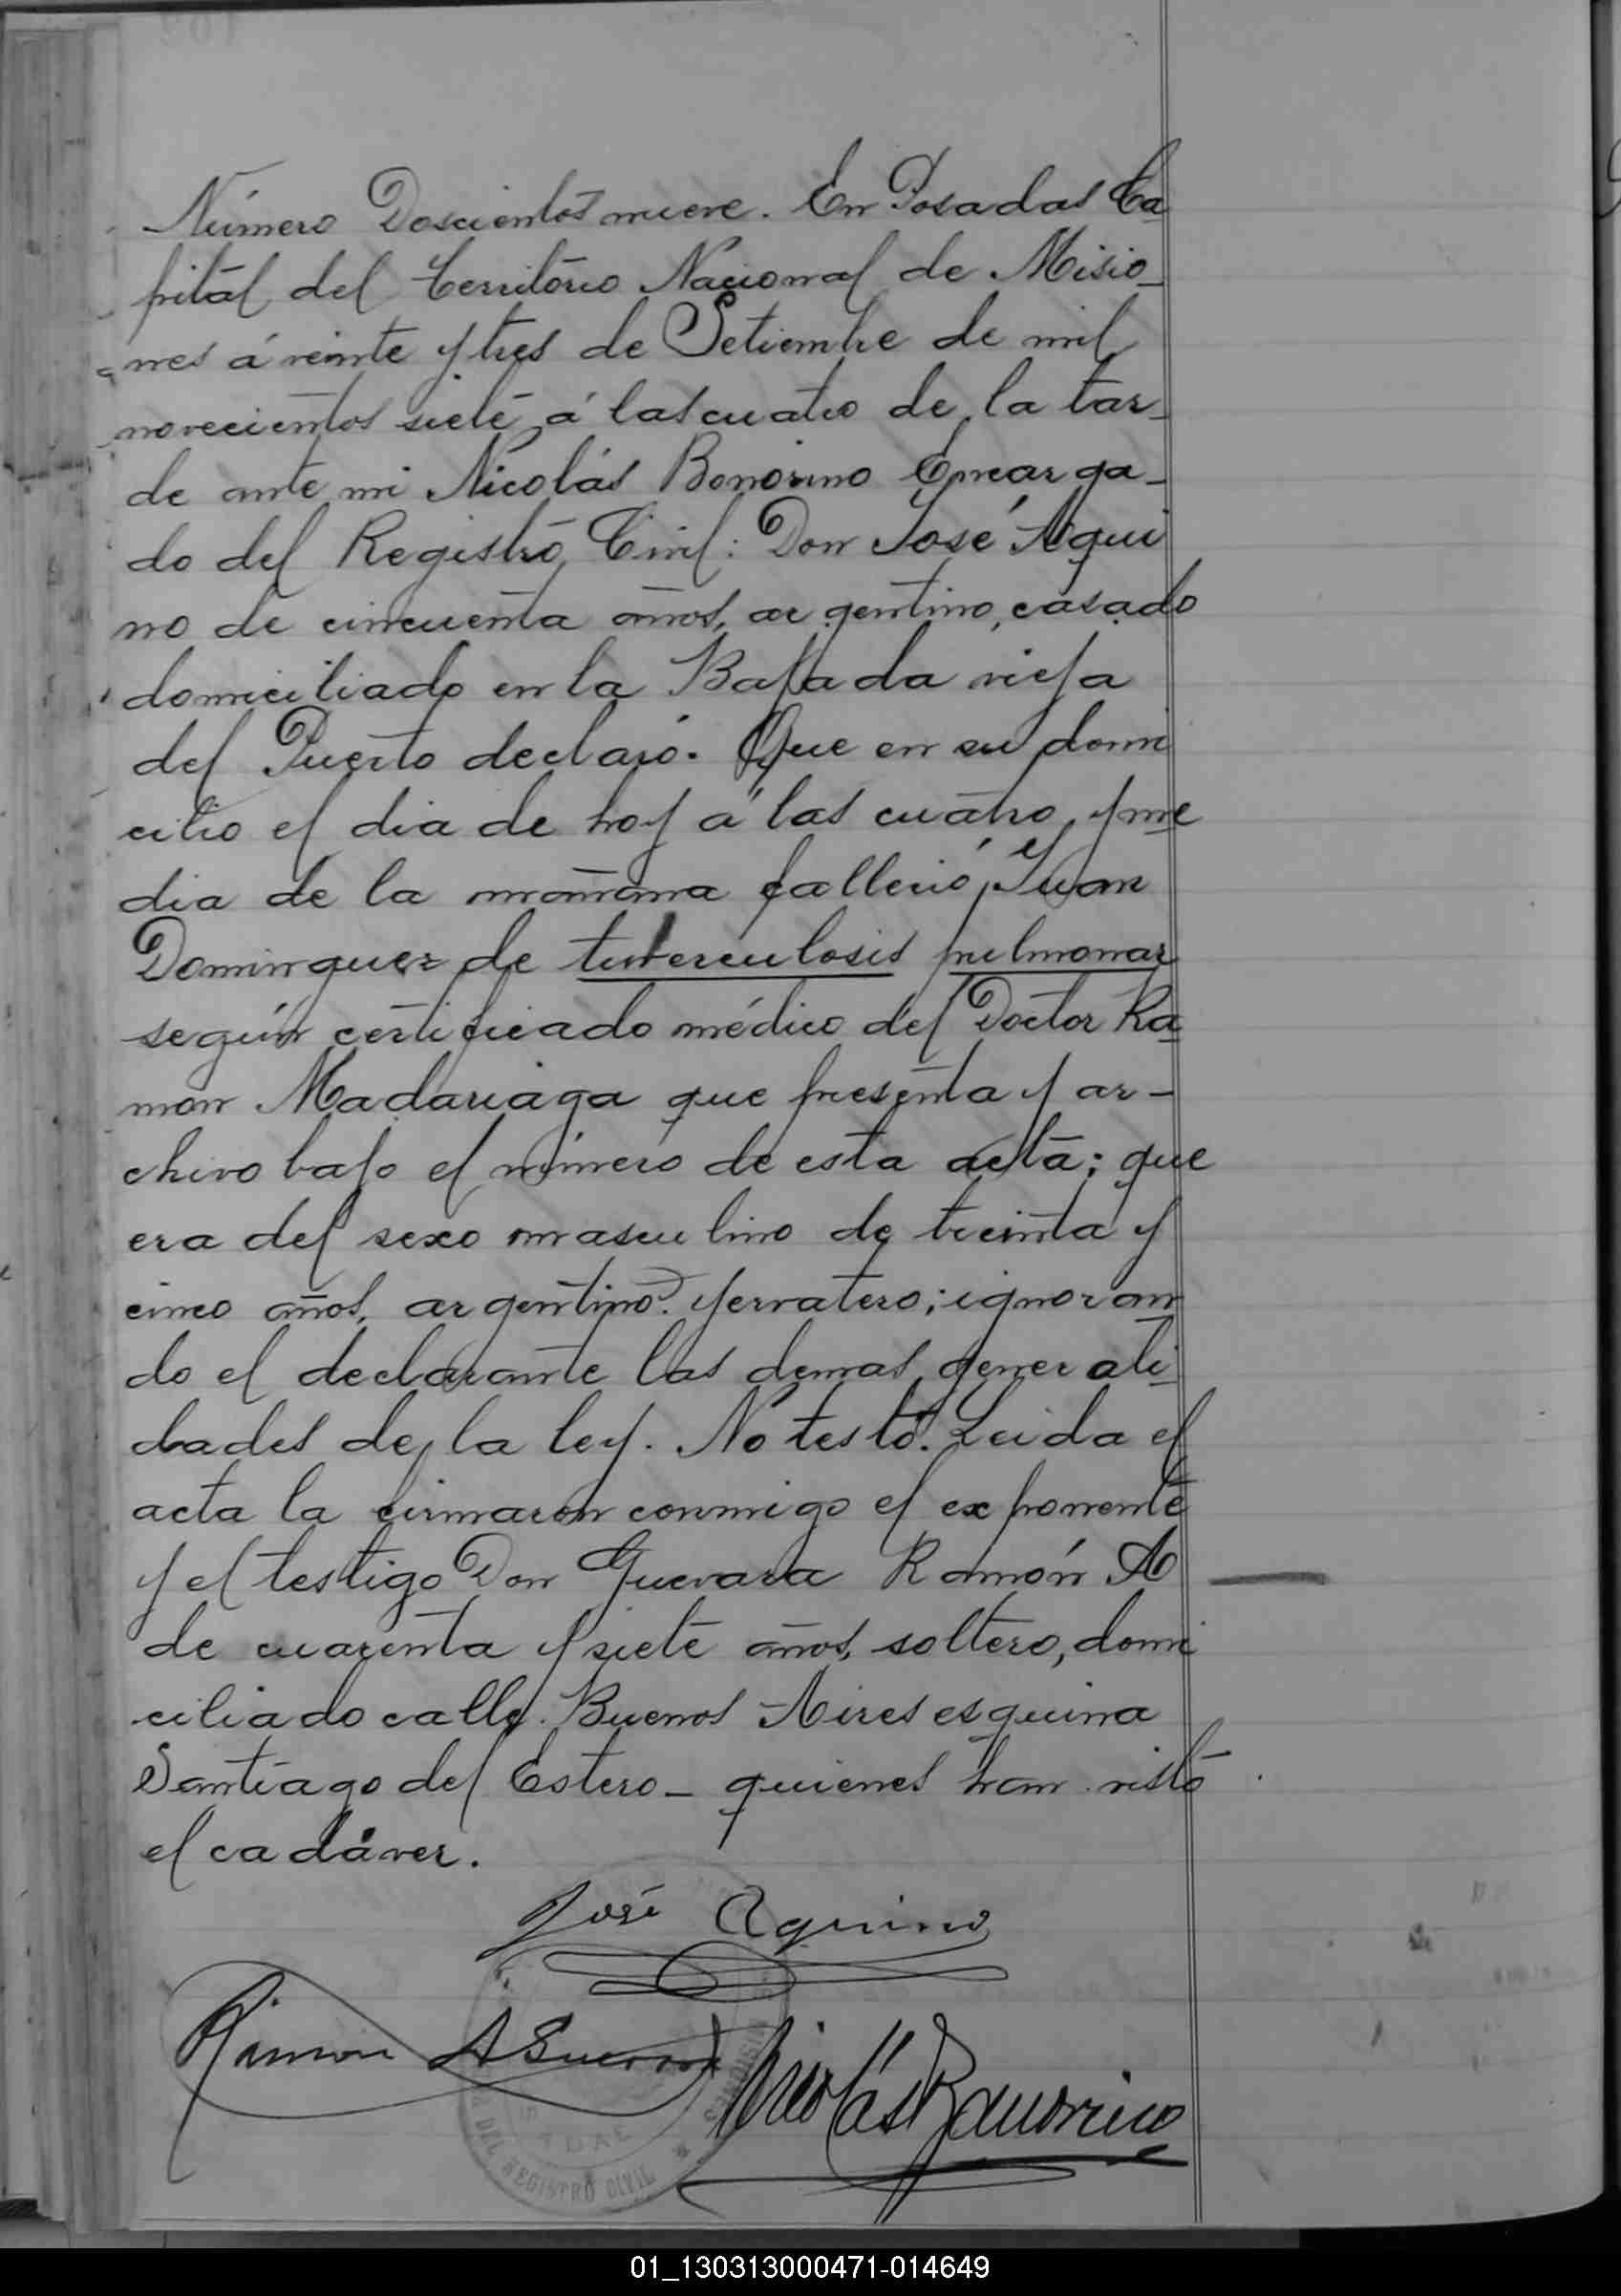 Número Doscientos nueve. En Posadas Ca
pital del Territorio Nacional de Misio_
nes á veinte y tres de Setiembre de mil
novecientos siete á las cuatro de la tar_
de ante mi Nicolás Bonorino Encarga_
do del Registro Civil: Don José Aqui
no de cincuenta años, argentino, casado
domiciliado en la Bajada vieja
del Puerto declaró. Que en su domi
cilio el dia de hoy á las cuatro y me
dia de la mañana falleció Juan
Dominguez de tuberculosis pulmonar
según certificado médico del Doctor Ra
mon Madariaga que presenta y ar-
chivo bajo el número de esta acta; que
era del sexo masculino de treinta y
cinco años, argentino. yervatero; ignoran
do el declarante las demas generali
dades de la ley. No testó. Leida el
acta la firmaron conmigo el exponente
y el testigo Don Guevara Ramón A
de cuarenta y siete años, soltero, domi
ciliado calle Buenos Aires esquina
Santiago del Estero_ quienes han visto
el cadáver.
José Aquino
Ramon A Guevara
Nicolás Bonorino
DEL REGISTRO CIVIL
01_130313000471-014649